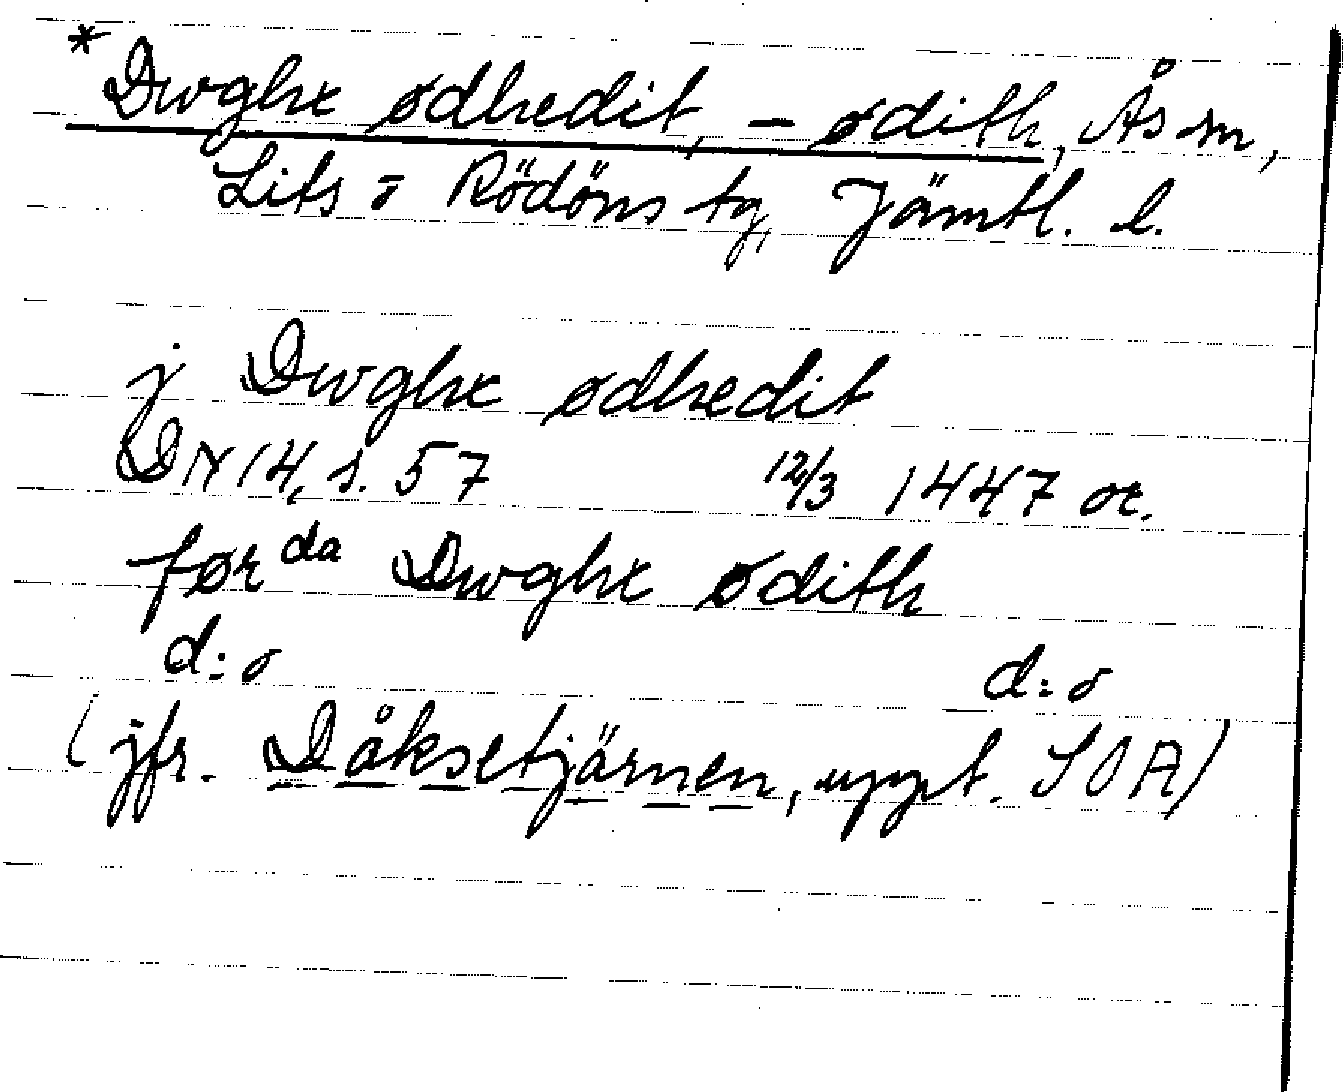 *Dwghæ ødhedit, - ødith, Ås sn,
Lits o Rödöns tg, Jämtl. l.
j Dwghæ ødhedit
DN 14, s. 57 12/3 1447 or.
før da Dwghæ ødith
d:o d:o
(jfr. Dåksetjärnen, uppt. SOA)